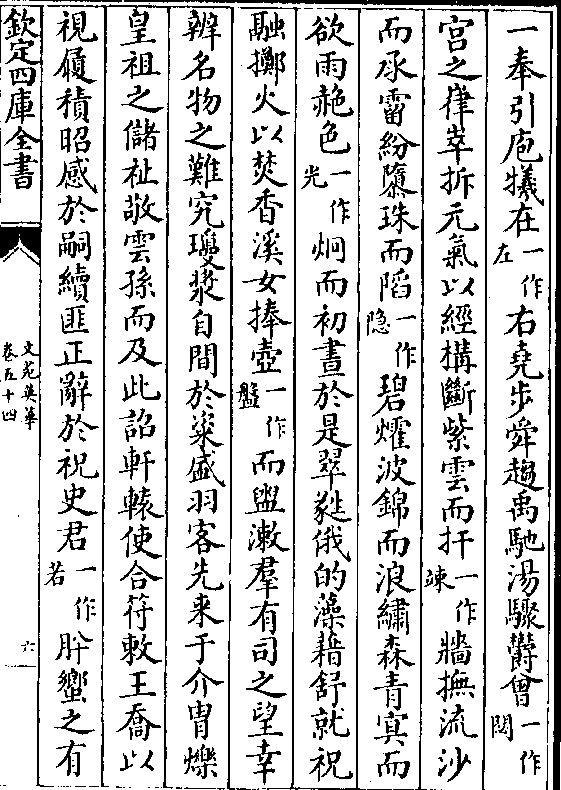 一奉引庖犧在一作左右堯步舜趨禹馳湯驟欝㑹一作閟
宮之律崒拆元氣以經構斷紫雲而扞一作竦牆撫流沙
而承霤紛隳珠而䧟一作隐碧燿波錦而浪繡森青㝠而
欲雨赩色一作光炯而初晝於是翠蕤俄的藻藉舒就祝
融擲火以焚香溪女捧壺一作盤而盥漱羣有司之望幸
辨名物之難究瓊漿自間於粢盛羽客先来于介胄爍
皇祖之儲祉敬雲孫而及此詔軒轅使合符敕王喬以
視屨積昭感於嗣續匪正辭於祝史君一作若肸蠁之有
欽定四庫全書
文苑英華
卷五十四
六